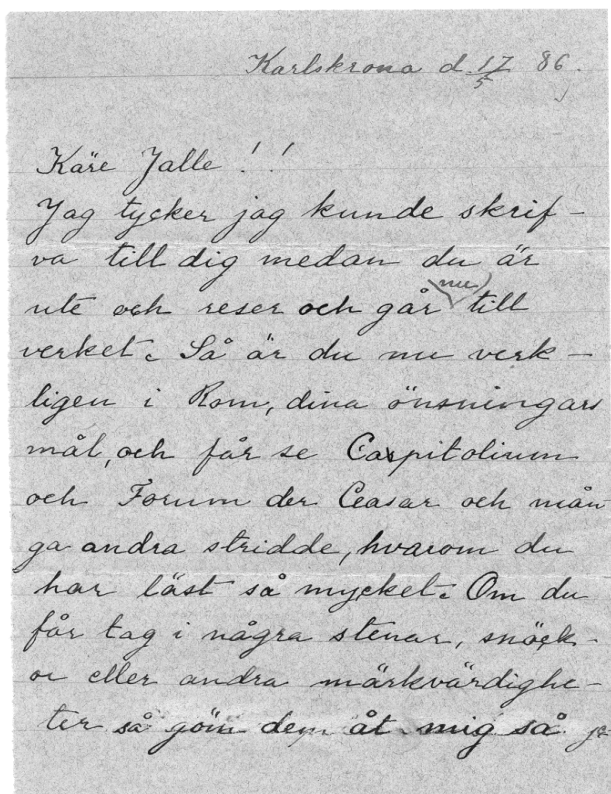 Karlskrona d. 17/5 86.
Käre Jalle!!
Jag tycker jag kunde skrif-
va till dig medan du är
ute och reser och går nu till
verket. Så är du nu verk-
ligen i Rom, dina önsningars
mål, och får se Capitolium
och Forum der Ceasar och mån
ga andra stridde, hvarom du
har läst så mycket. Om du
får tag i några stenar, snäck-
or eller andra märkvärdighe-
ter så göm dem åt mig så